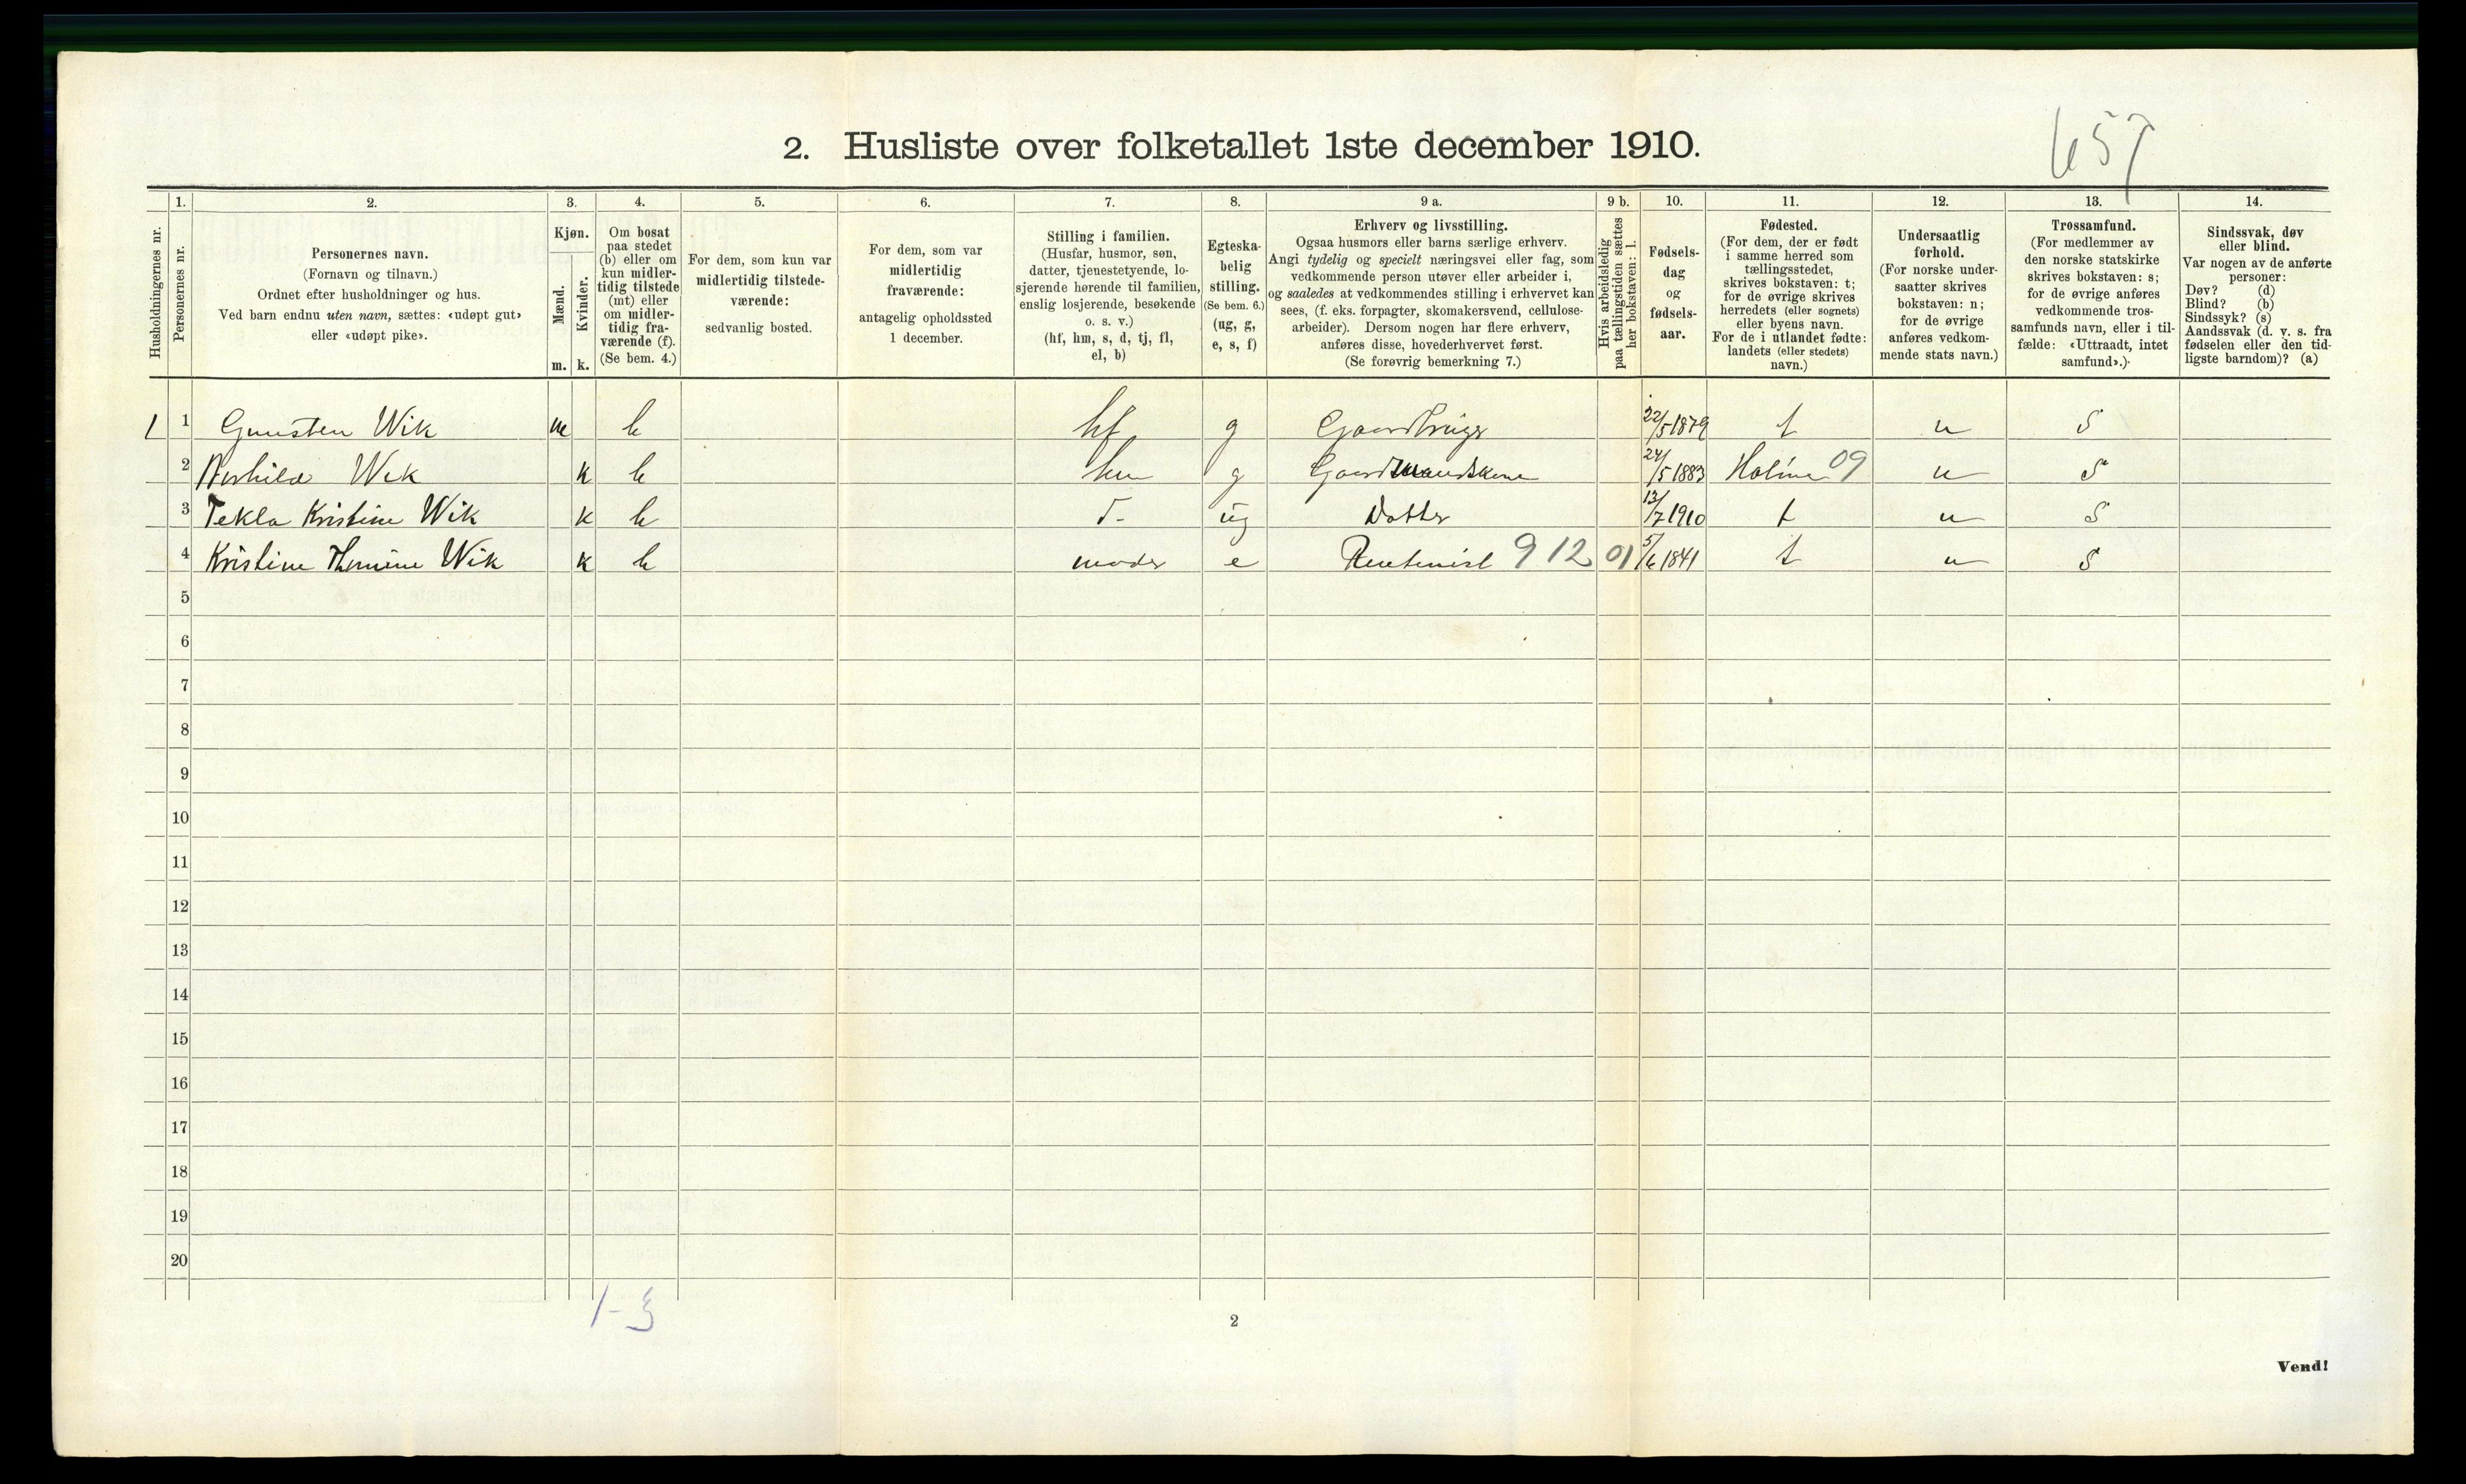 657
2. Husliste over folketallet 1ste december 1910.
1. 2. 3. 4. 5. 6. 7. 8. 9 a. 9 b. 10. 11. 12. 13. 14.
Husholdningernes nr.
Personernes nr.
Personernes navn.
(Fornavn og tilnavn.)
Ordnet efter husholdninger og hus.
Ved barn endnu uten navn, sættes: «udøpt gut»
eller «udøpt pike».
Kjøn.
Mænd.
Kvinder.
m. k.
Om bosat
paa stedet
(b) eller om
kun midler-
tidig tilstede
(mt) eller
om midler-
tidig fra-
værende (f).
(Se bem. 4.)
For dem, som kun var
midlertidig tilstede-
værende:
sedvanlig bosted.
For dem, som var
midlertidig
fraværende:
antagelig opholdssted
1 december.
Stilling i familien.
(Husfar, husmor, søn,
datter, tjenestetyende, lo-
sjerende hørende til familien,
enslig losjerende, besøkende
o. s. v.)
(hf, hm, s, d, tj, fl,
el, b)
Egteska-
belig
stilling.
(Se bem. 6.)
(ug, g,
e, s, f)
Erhverv og livsstilling.
Ogsaa husmors eller barns særlige erhverv.
Angi tydelig og specielt næringsvei eller fag, som
vedkommende person utøver eller arbeider i,
og saaledes at vedkommendes stilling i erhvervet kan
sees, (f. eks. forpagter, skomakersvend, cellulose-
arbeider). Dersom nogen har flere erhverv,
anføres disse, hovederhvervet først.
(Se forøvrig bemerkning 7.)
Hvis arbeidsledig
paa tællingstiden sættes
her bokstaven: l.
Fødsels-
dag
og
fødsels-
aar.
Fødested.
(For dem, der er født
i samme herred som
tællingsstedet,
skrives bokstaven: t;
for de øvrige skrives
herredets (eller sognets)
eller byens navn.
For de i utlandet fødte:
landets (eller stedets)
navn.)
Undersaatlig
forhold.
(For norske under-
saatter skrives
bokstaven: n;
for de øvrige
anføres vedkom-
mende stats navn.)
Trossamfund.
(For medlemmer av
den norske statskirke
skrives bokstaven: s;
for de øvrige anføres
vedkommende tros-
samfunds navn, eller i til-
fælde: «Uttraadt, intet
samfund».)
Sindssvak, døv
eller blind.
Var nogen av de anførte
personer:
Døv? (d)
Blind? (b)
Sindssyk? (s)
Aandssvak (d. v. s. fra
fødselen eller den tid-
ligste barndom)? (a)
1 1 Gunsten Wik m b hf g Gaardbruger 22/5 1879 t n S
2 Wik k b hm g Gaardmandskone 24/5 1883 Holme 09 n S
3 Tekla Kristine Wik k b d- ug Datter 13/7 1910 t n S
4 Kristine Wik k b moder e Rentenist 912 01 5/6 1841 t n S
5
6
7
8
9
10
11
12
13
14
15
16
17
18
19
20
1-3
2
Vend!